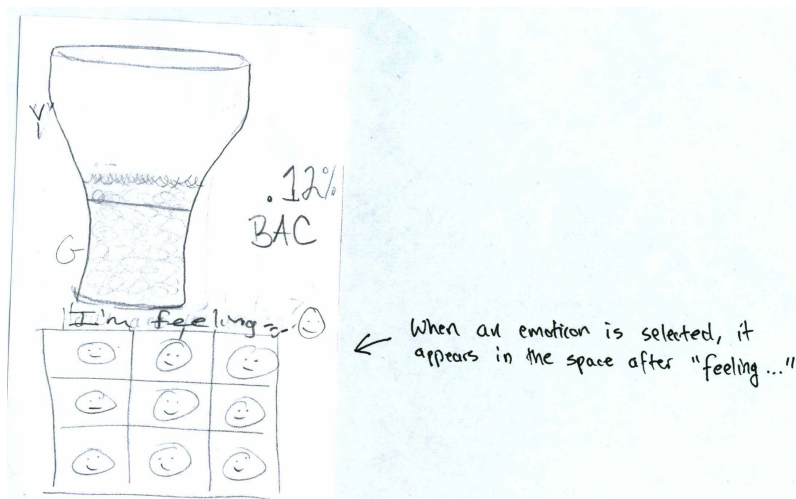 Y
G
.12%
BAC
I'm feeling
When an emoticon is selected, it
appears in the space after "feeling..."